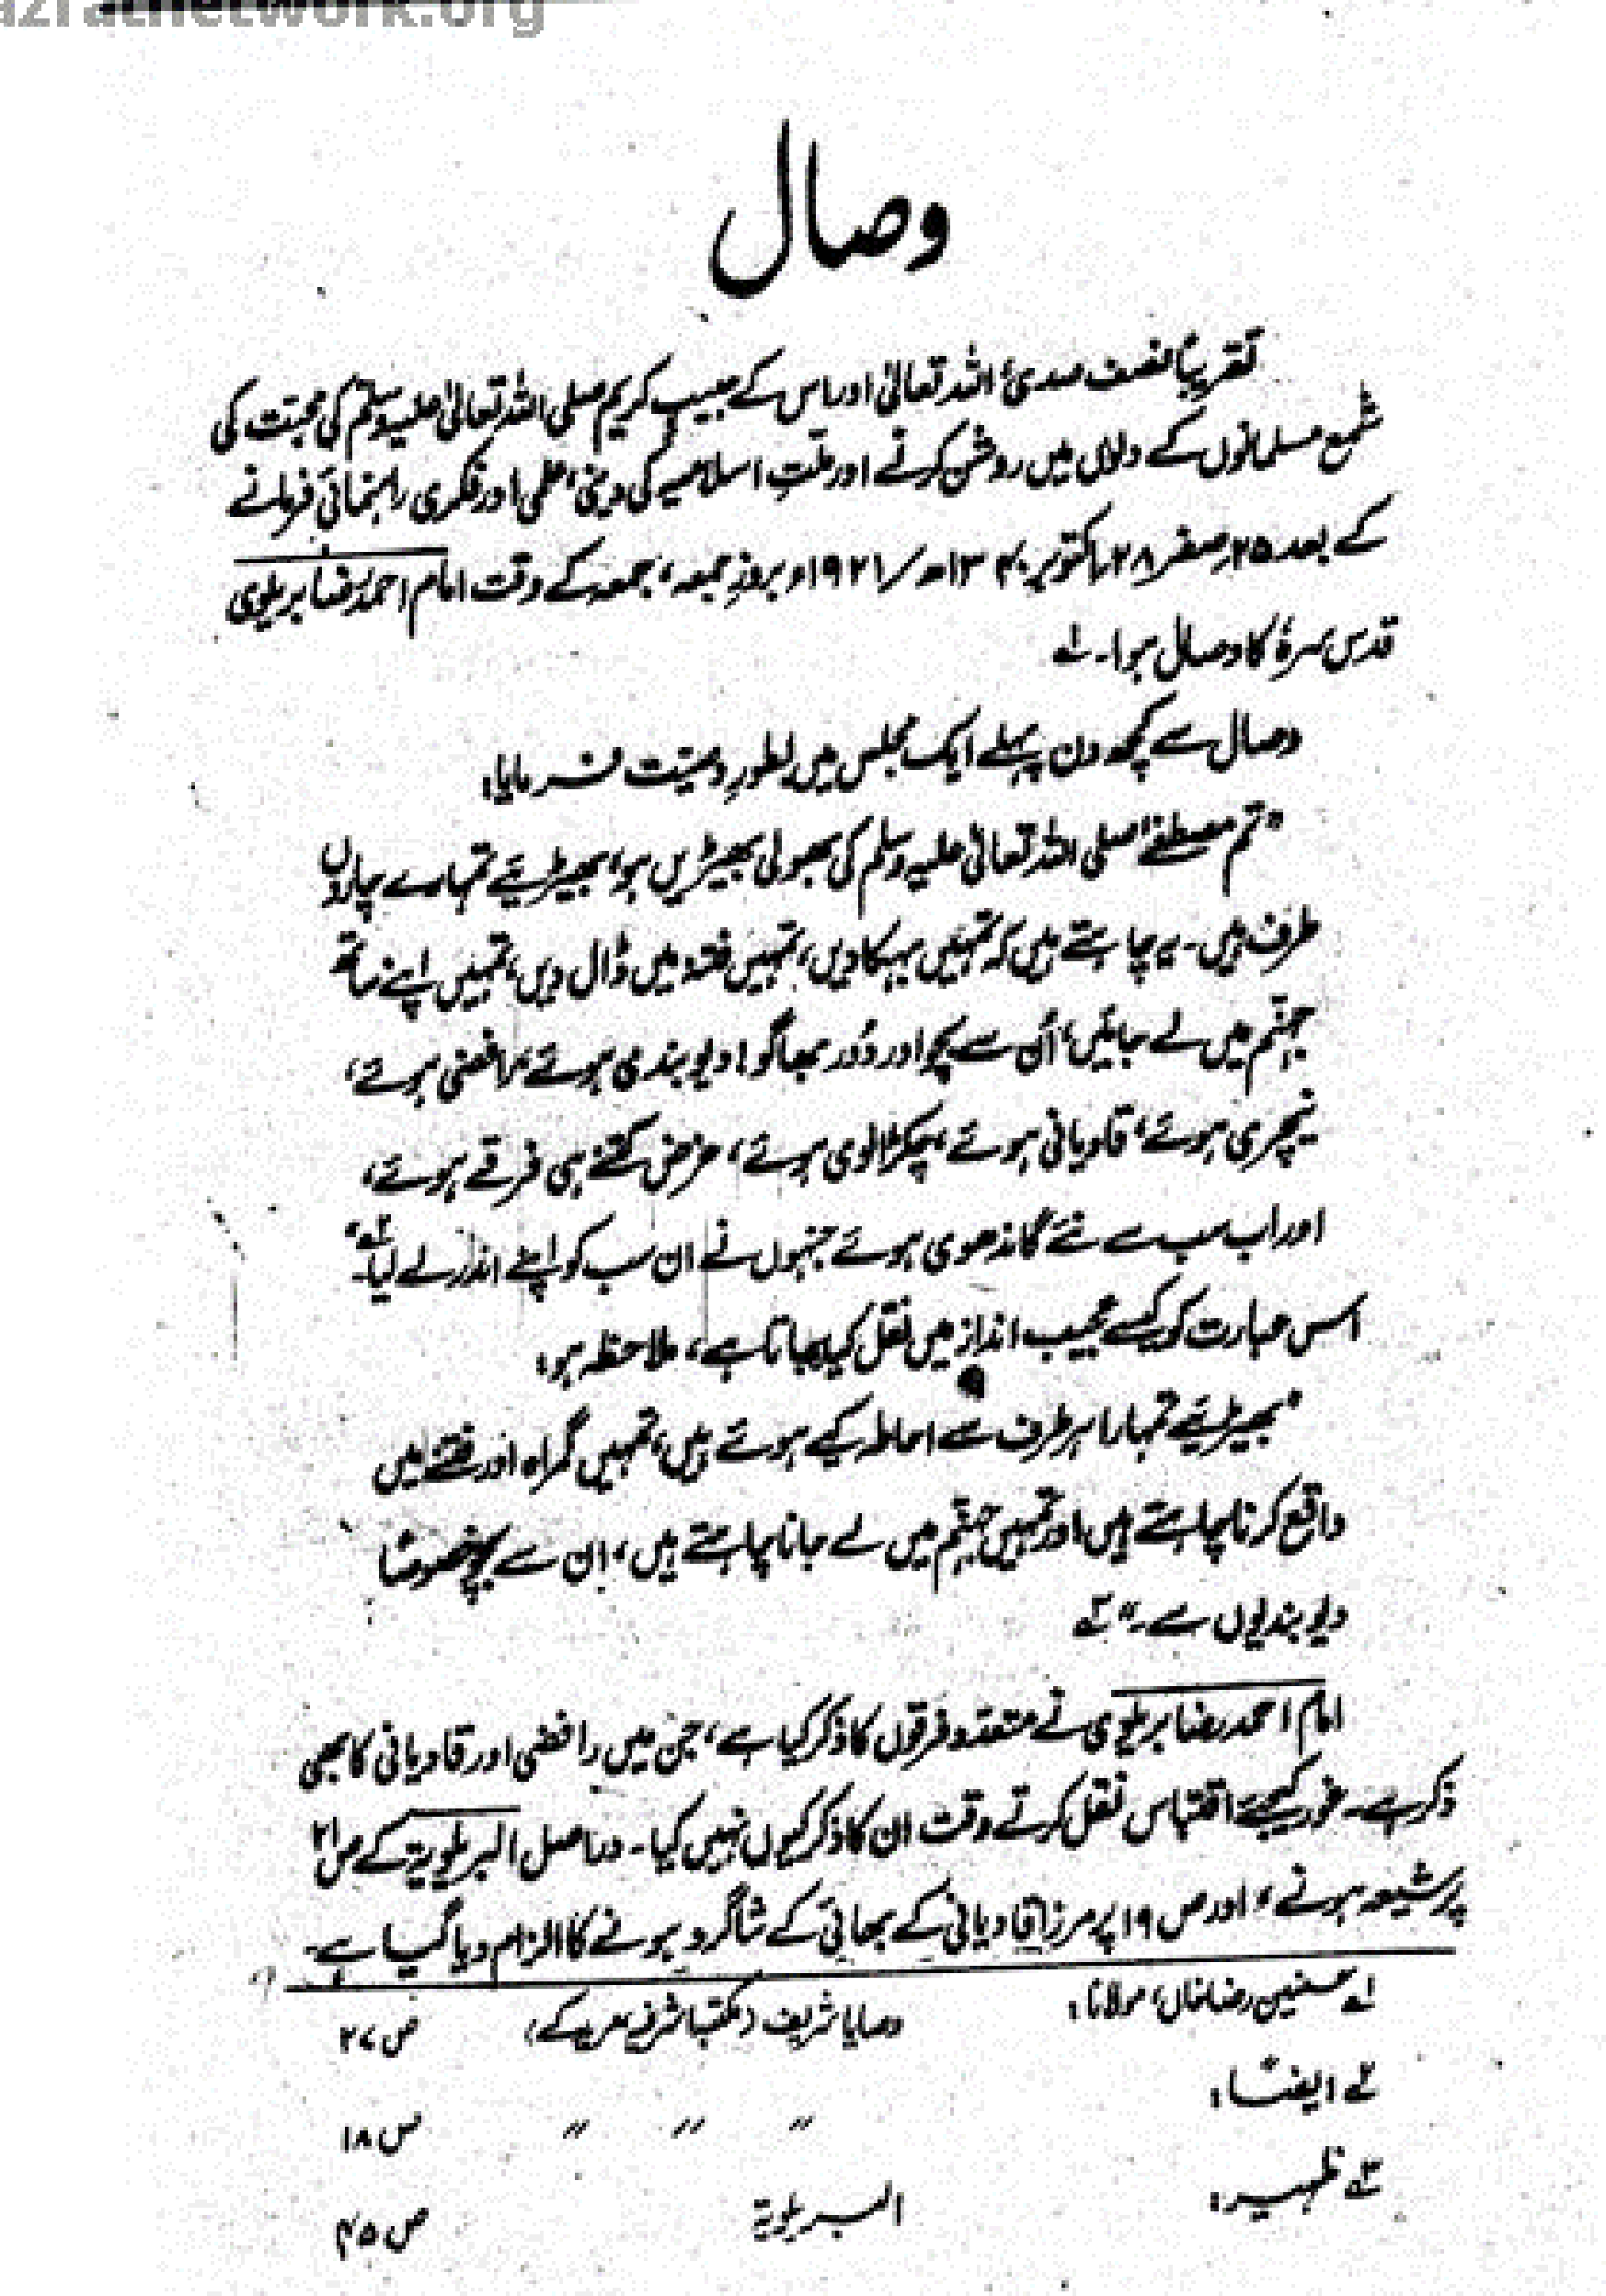 azratnetwork.org
وصال
تقریباً نصف صدی اللہ تعالیٰ اور اس کے حبیب کریم صلی اللہ تعالیٰ علیہ وسلم کی محبت کی
شمع مسلمانوں کے دلوں میں روشن کرنے اور ملتِ اسلامیہ کی دینی، علمی اور فکری راہنمائی فرمانے
کے بعد ۲۵ صفر ۲۸ اکتوبر ۱۳۴۰ھ/۱۹۲۱ء بروز جمعہ، جمعہ کے وقت امام احمد رضا بریلوی
قدس سرہٗ کا وصال ہوا۔ ۱؎
وصال سے کچھ دن پہلے ایک مجلس میں بطورِ وصیّت فرمایا:
"تم مصطفےٰ صلی اللہ تعالیٰ علیہ وسلم کی بھولی بھیڑیں ہو، بھیڑیئے تمہارے چاروں
طرف ہیں۔ یہ چاہتے ہیں کہ تمہیں بہکا دیں، تمہیں فتنہ میں ڈال دیں، تمہیں اپنے ساتھ
جہنّم میں لے جائیں، اُن سے بچو اور دُور بھاگو! دیوبندی ہوئے، رافضی ہوئے،
نیچری ہوئے، قادیانی ہوئے، چکڑالوی ہوئے، غرض کتنے ہی فرقے ہوئے،
اور اب سب سے نئے گاندھوی ہوئے جنہوں نے ان سب کو اپنے اندر لے لیا۔" ۲؎
اس عبارت کو کیسے عجیب انداز میں نقل کیا جاتا ہے، ملاحظہ ہو:
"بھیڑیئے تمہارا ہر طرف سے احاطہ کیے ہوئے ہیں، تمہیں گمراہ اور فتنے میں
واقع کرنا چاہتے ہیں اور تمہیں جہنّم میں لے جانا چاہتے ہیں، ان سے بچو خصوصًا
دیوبندیوں سے۔" ۳؎
امام احمد رضا بریلوی نے متعدد فرقوں کا ذکر کیا ہے، جن میں رافضی اور قادیانی کا بھی
ذکر ہے۔ غور کیجئے اقتباس نقل کرتے وقت ان کا ذکر کیوں نہیں کیا۔ دراصل البریلویۃ کے ص ۲۱
پر شیعہ ہونے، اور ص ۱۹ پر مرزا قادیانی کے بھائی کے شاگرد ہونے کا الزام دیا گیا ہے۔
۱؎ حسنین رضا خاں، مولانا: وصایا شریف (مکتبہ اشرفیہ مریدکے) ص ۲۷
۲؎ ایضًا: " " " ص ۱۸
۳؎ ظہیر: البریلویۃ ص ۴۵